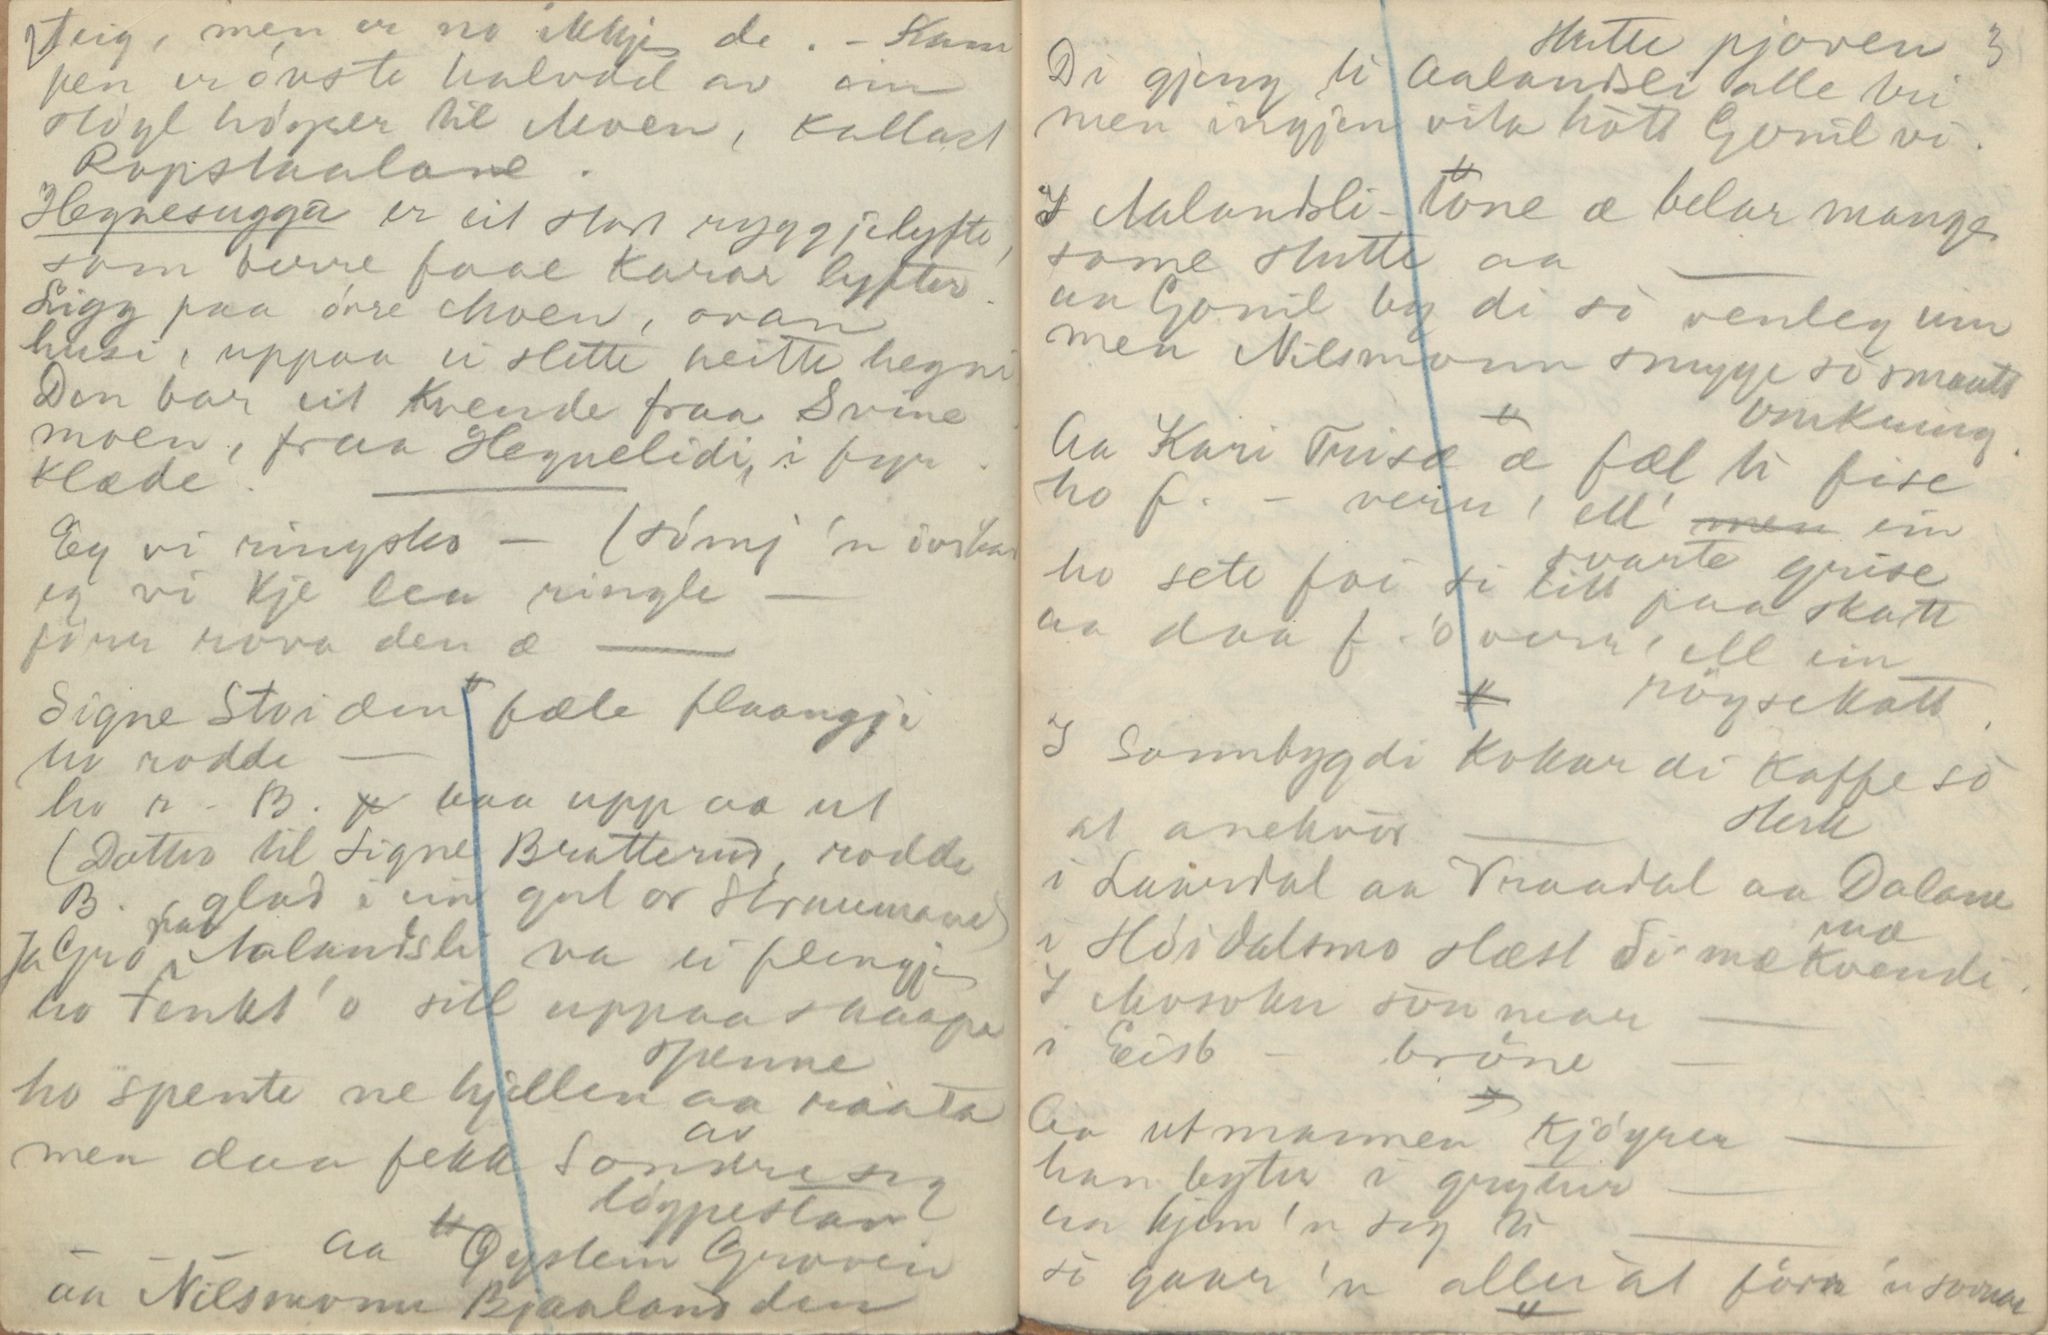 teig, men er no ikkje de. - Kam
pen er övste halvad av ein
stöyl högper til Moen, kallast
Ropstaalane.
Hegnesugga er eit stort ryggjelyfte,
som berre faae karar lyfter.
Ligg paa örre Moen, ovan
husi, uppaa ei slette heitte hegni
Den bar eit kvende fraa Svine
moen, fraa Hegnelidi, i fyr.
klæde.
Eg vi ringsko — (sömj 'n
eg vi kje lea ringle —
förr rova den æ —
Signe Stoi den fæle flaangji
ho rodde —
ho r - B. baa upp aa ut
(Dotter til Signe Bratterud, rodde
B. glad i ein gut or Straumane)
Ja Gro fraa Aalandsli va ei flengje
ho tenkt 'o sill uppaa skaape
spenne
ho spente ne hjellen aa raata
men daa fekk Sondre seg
av
löypestav
— — — aa Öystein Groven
aa Nilsmonn Bjaaland den
3
slutte pjoven
Di gjeng ti Aalandsli alle tri
men ingjen vita hött Gonil vi.
I Aalandsli-tone æ belar mange
some slutte aa —
aa Gonil by di so venleg inn
men Nilsmonn snygge so smaatt
omkring.
Aa Kari Trisæ æ fæl ti fise
ho f. - verr' ell' men ein
svarte grise
ho sete foi si litt paa skatt
aa daa f. 'o verr' ell ein
röysekatt.
I Sonnbygdi kokar di kaffe so
sterk
at anekvor —
i Laurdal aa Vraadal aa Dalane
mæ
i Höidalsmo slæst di mæ kvendi.
I Mosoku son mar —
i Eisb - bröne —
Aa utmannen kjöyrer —
han byter i gryter —
aa kjem 'n seg ti —
so gaar 'n aller at förr 'n sovnar